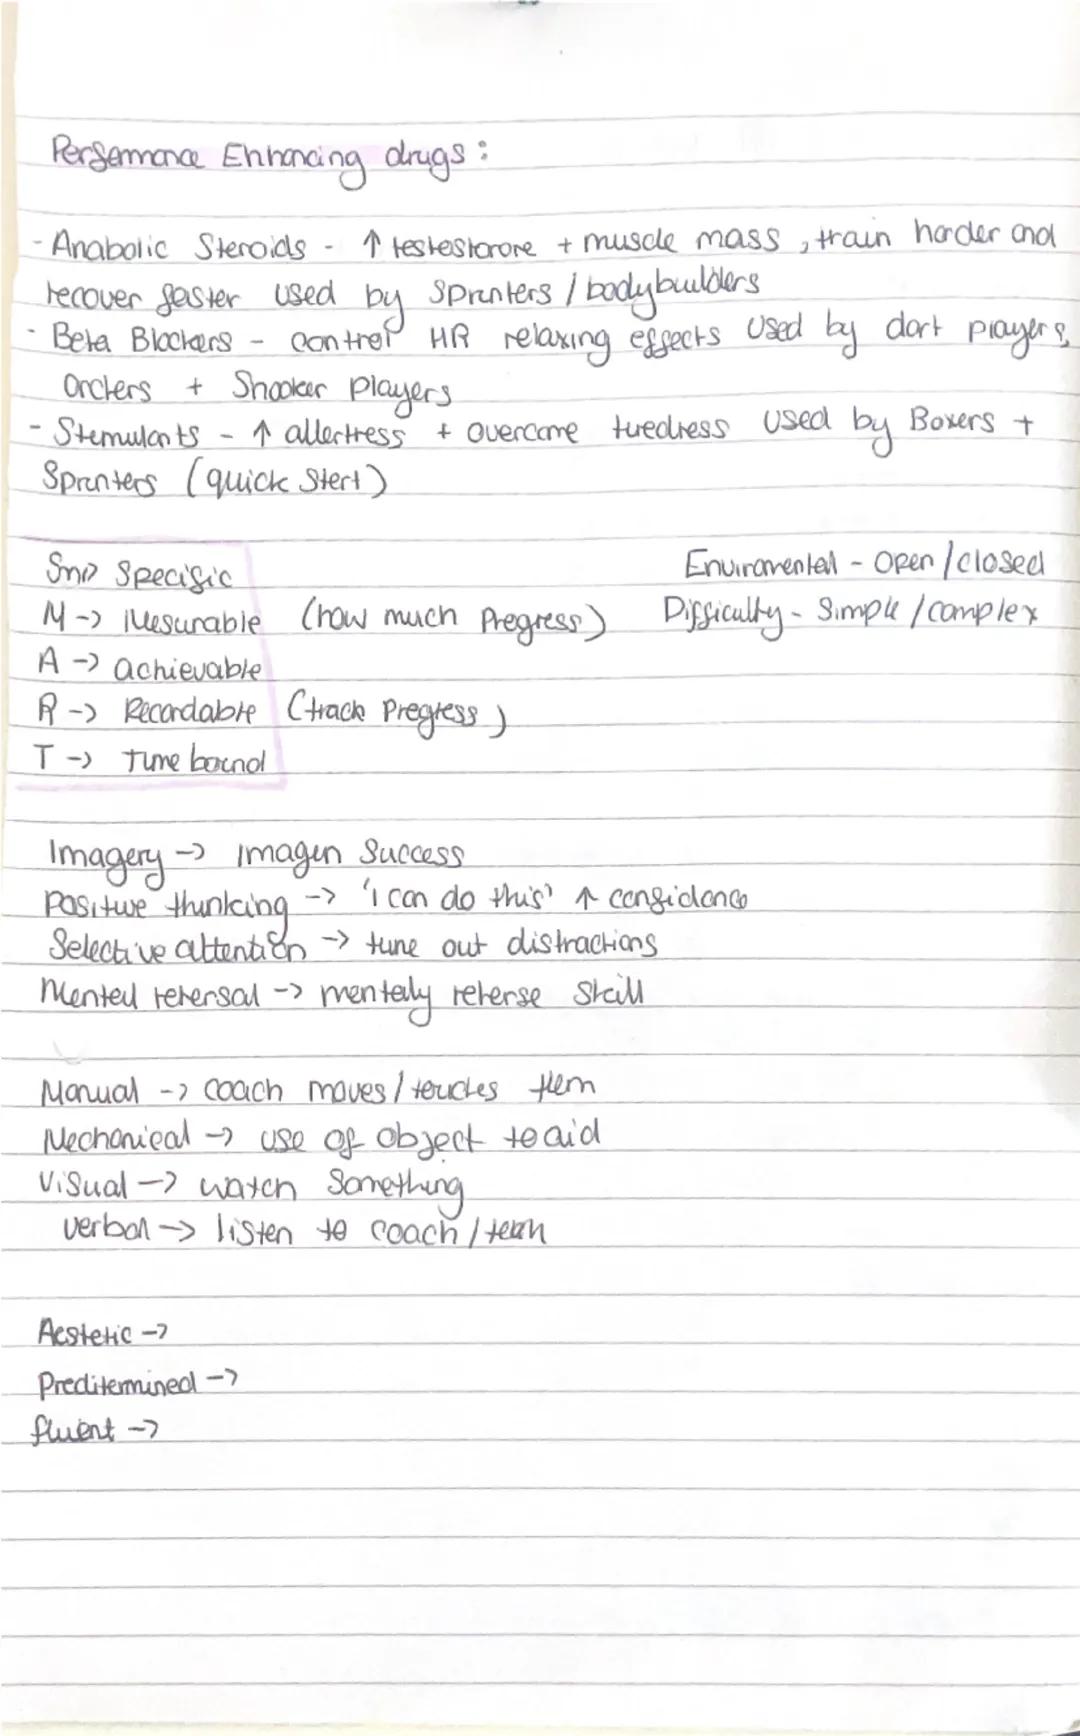 Performance Enhancing drugs :
- Anabolic Steroids - ↑ testestorore + muscle mass , train harder and
recover faster used by Sprinters / bodybuilders
- Beta Blockers - control HR relaxing effects used by dart players,
Archers + Snooker players
- Stemulants - ↑ allertness + overcome tiredness used by Boxers +
Sprinters (quick Start)
S -> Specific
Enviromental - Open / closed
M -> Mesurable (how much Progress)
Difficulty - Simple / complex
A -> achievable
R -> Recordable (track Progress)
T -> time bound
Imagery -> imagen Success
Positive thinking -> 'i can do this' ↑ confidence
Selective attention -> tune out distractions
Mental rehersal -> mentally reherse skill
Manual -> coach moves / touches them
Mechanical -> use of object to aid
Visual -> watch Something
verbal -> listen to coach / team
Aestetic ->
Preditermined ->
fluent ->